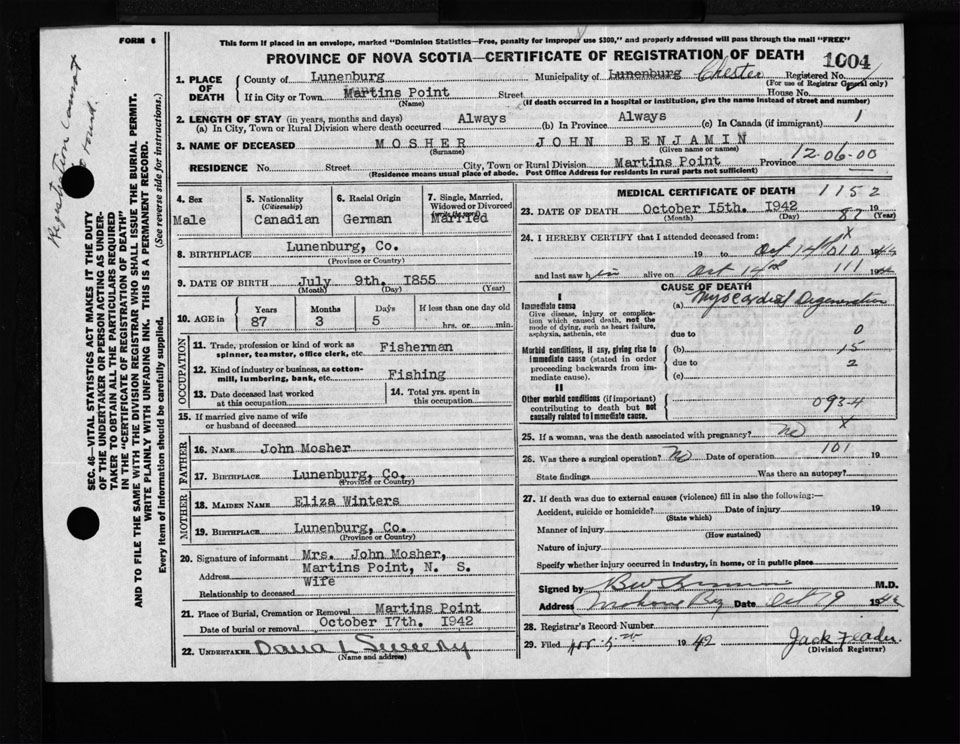 FORM 6
This form if placed in an envelope, marked "Dominion Statistics—Free, penalty for improper use $300," and properly addressed will pass through the mail "FREE"
PROVINCE OF NOVA SCOTIA—CERTIFICATE OF REGISTRATION OF DEATH
1004
1. PLACE OF DEATH
County of Lunenburg Municipality of Lunenburg Chester Registered No.
(For use of Registrar General only)
If in City or Town Martins Point Street House No.
(Name) (If death occurred in a hospital or institution, give the name instead of street and number)
2. LENGTH OF STAY (in years, months and days)
(a) In City, Town or Rural Division where death occurred Always (b) In Province Always (c) In Canada (if immigrant) 1
3. NAME OF DECEASED MOSHER JOHN BENJAMIN
(Surname) (Given name or names)
RESIDENCE No. Street City, Town or Rural Division Martins Point Province 12-06-00
(Residence means usual place of abode. Post Office Address for residents in rural parts not sufficient)
4. Sex
Male
5. Nationality
(Citizenship)
Canadian
6. Racial Origin
German
7. Single, Married, Widowed or Divorced
(write the word)
Married
8. BIRTHPLACE Lunenburg, Co.
(Province or Country)
9. DATE OF BIRTH July 9th. 1855
(Month) (Day) (Year)
10. AGE in Years Months Days If less than one day old
87 3 5 hrs. or min.
OCCUPATION
11. Trade, profession or kind of work as spinner, teamster, office clerk, etc. Fisherman
12. Kind of industry or business, as cotton-mill, lumbering, bank, etc. Fishing
13. Date deceased last worked at this occupation
14. Total yrs. spent in this occupation
15. If married give name of wife or husband of deceased
FATHER
16. NAME John Mosher
17. BIRTHPLACE Lunenburg, Co.
(Province or Country)
MOTHER
18. MAIDEN NAME Eliza Winters
19. BIRTHPLACE Lunenburg, Co.
(Province or Country)
20. Signature of informant Mrs. John Mosher,
Address Martins Point, N. S.
Relationship to deceased Wife
21. Place of Burial, Cremation or Removal Martins Point
Date of burial or removal October 17th. 1942
22. UNDERTAKER Dana L Sweeny
(Name and address)
MEDICAL CERTIFICATE OF DEATH 1152
23. DATE OF DEATH October 15th. 1942
(Month) (Day) 87 (Year)
24. I HEREBY CERTIFY that I attended deceased from: X
19 to Oct 14th 010 1942
and last saw him alive on Oct 14th 111 1942
CAUSE OF DEATH
I
Immediate cause (a) Myocardial Degeneration
Give disease, injury or complication which caused death, not the mode of dying, such as heart failure, asphyxia, asthenia, etc
due to 0
Morbid conditions, if any, giving rise to immediate cause (stated in order proceeding backwards from immediate cause).
(b) 15
due to 2
(c)
II
Other morbid conditions (if important) contributing to death but not causally related to immediate cause.
093-4
X
25. If a woman, was the death associated with pregnancy? No
26. Was there a surgical operation? No Date of operation 101 19
State findings Was there an autopsy?
27. If death was due to external causes (violence) fill in also the following:—
Accident, suicide or homicide? Date of injury 19
(State which)
Manner of injury
(How sustained)
Nature of injury
Specify whether injury occurred in industry, in home, or in public place
Signed by M.D.
Address Mahone Bay Date Oct 19 1942
28. Registrar's Record Number
29. Filed Nov 5th 1942 Jack Feader
(Division Registrar)
SEC. 46—VITAL STATISTICS ACT MAKES IT THE DUTY
OF THE UNDERTAKER OR PERSON ACTING AS UNDER-
TAKER TO OBTAIN ALL THE PARTICULARS REQUIRED
IN THE "CERTIFICATE OF REGISTRATION OF DEATH"
AND TO FILE THE SAME WITH THE DIVISION REGISTRAR WHO SHALL ISSUE THE BURIAL PERMIT.
WRITE PLAINLY WITH UNFADING INK. THIS IS A PERMANENT RECORD.
Every item of information should be carefully supplied. (See reverse side for instructions).
Registration Cannot
found.